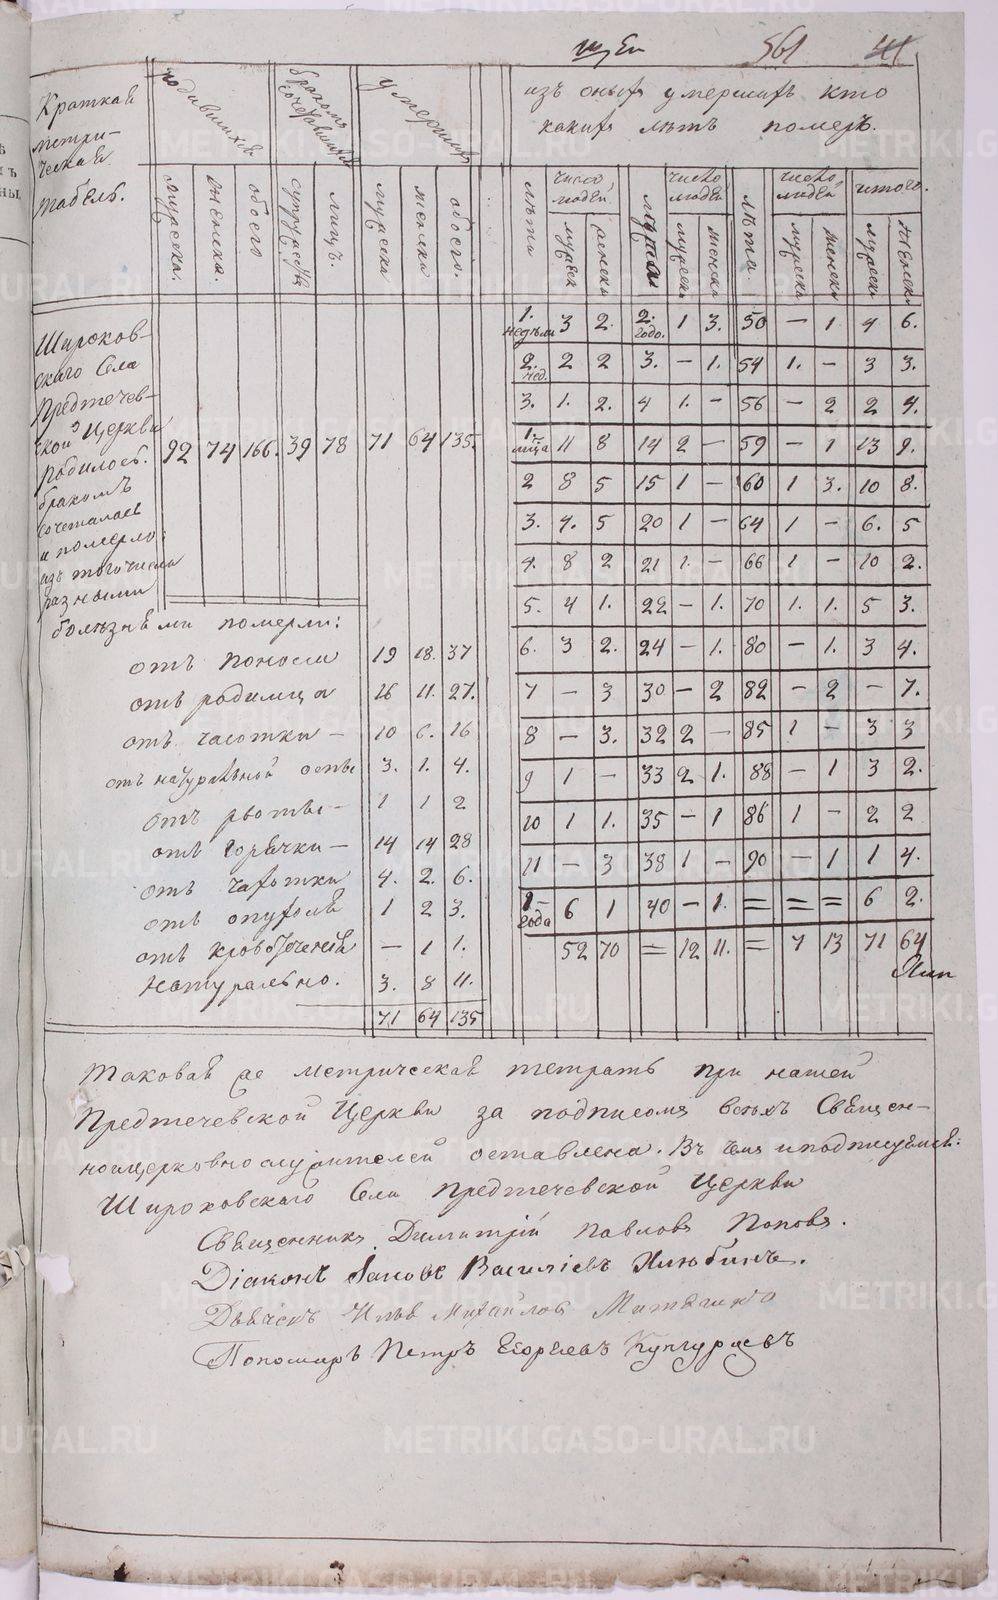 561
Краткая
метри-
ческая
табель.
родившихся
бракомъ сочетавшихся
умерших
изъ оныхъ умершихъ кто
какихъ лѣтъ померъ.
мужеска. женска. обоего
супружествъ лицъ.
мужеска женска обоего.
лѣта число людей мужеск женска
лѣта число людей мужеска женска
лѣта число людей мужеска женска
итого. мужеска женска
Широков-
скаго Села
Предтечев-
ской Церкви
родилось.
бракомъ
сочеталось
и померло;
изъ того числа
разными
болѣзнями померли:
92 74 166. 39 78 71 64 135.
отъ поноса 19 18. 37
отъ родимца 16 11. 27.
отъ чесотки – 10 6. 16
отъ натуральной оспы 3. 1. 4.
отъ рвоты – 1 1 2
отъ горячки – 14 14 28
отъ чахотки 4. 2. 6.
отъ опухоли 1 2 3.
отъ кровотеченія – 1 1.
Натурально. 3. 8 11.
71 64 135
1. недѣли 3 2. 2. годо. 1 3. 50 – 1 4 6.
2. нед. 2 2 3. – 1. 54 1. – 3 3.
3. 1. 2. 4 1. – 56 – 2 2 4.
1- мѣца 11 8 14 2 – 59 – 1 13 9.
2 8 5 15 1 – 60 1 3. 10 8.
3. 4. 5 20 1 – 64 1 – 6. 5
4. 8 2 21 1. – 66 1 – 10 2.
5. 4 1. 22 – 1. 70 1. 1. 5 3.
6. 3 2. 24 – 1. 80 – 1. 3 4.
7 – 3 30 – 2 82 – 2 – 7.
8 – 3. 32 2 – 85 1 – 3 3
9 1 – 33 2 1. 88 – 1 3 2.
10 1 1. 35 – 1 86 1 – 2 2
11 – 3 38 1 – 90 – 1 1 4.
1- года 6 1 40 – 1. = = = 6 2.
52 70 = 12 11. = 7 13 71 64
Таковая же метрическая тетрать при нашей
Предтечевской Церкви за подписомъ всѣхъ Священ-
ноицерковнослужителей оставлена. Въ чемъ и подписуемся:
Широковскаго Села Предтечевской Церкви
Священникъ Димитрій Павловъ Поповъ.
Діаконъ Іаковъ Василіевъ Илюбинъ.
Дьячекъ Илья Михайловъ
Пономарь Петръ Егоріевъ Кунгурцевъ
METRIKI.GASO-URAL.RU